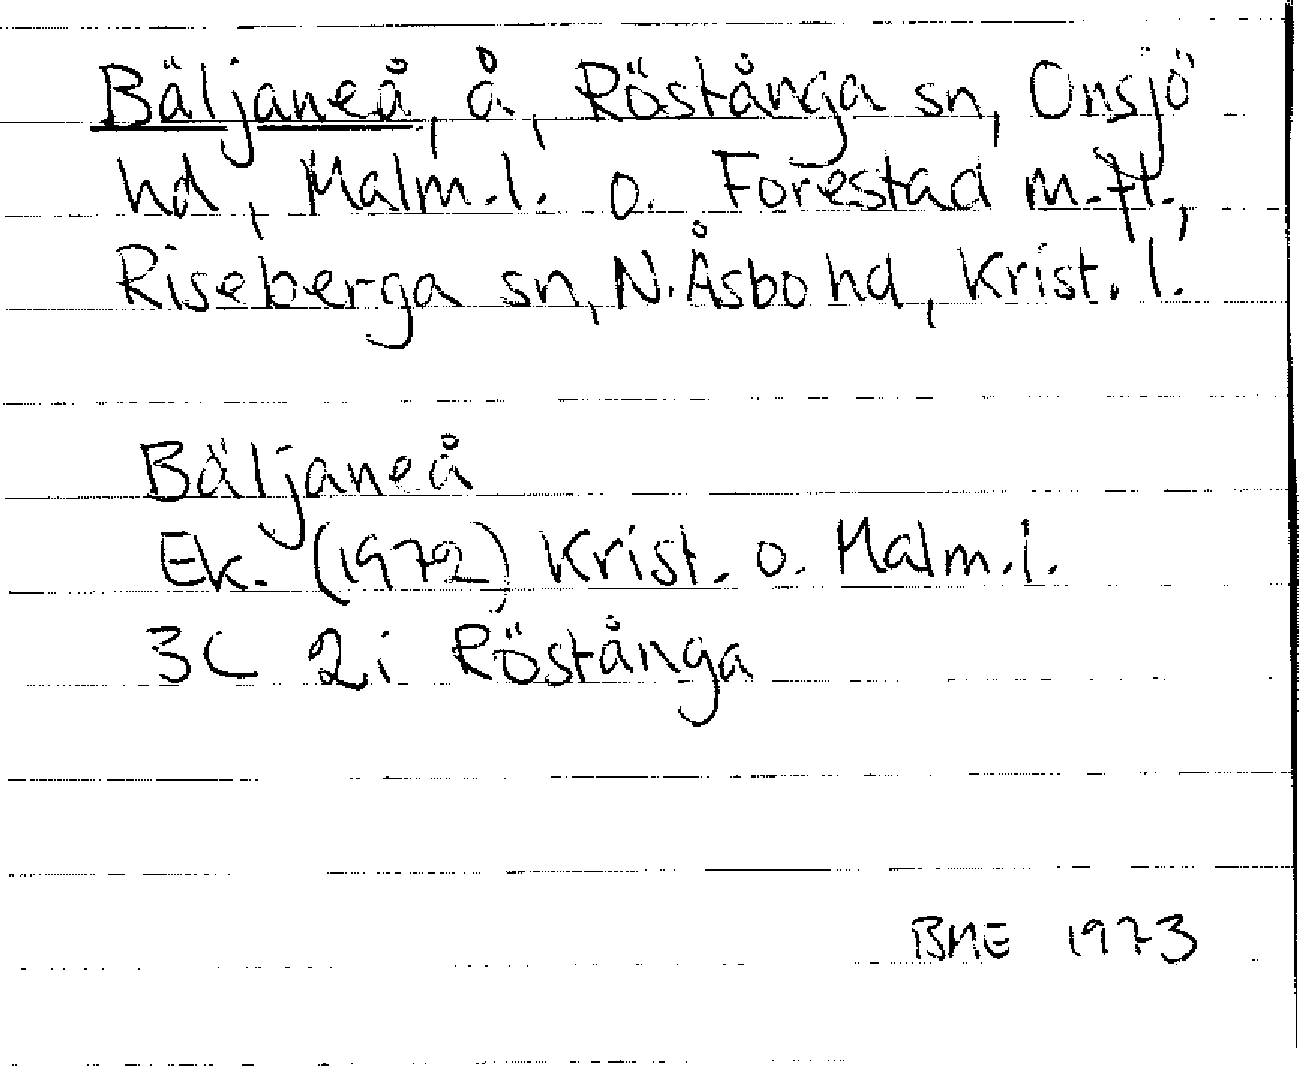 Bäljaneå, å, Röstånga sn, Onsjö
hd, Malm.l. o. Forestad m.fl.,
Riseberga sn, N. Åsbo hd, Krist. l.
Bäljaneå
Ek. (1972) Krist. o. Malm.l.
3C 2i Röstånga
BME 1973